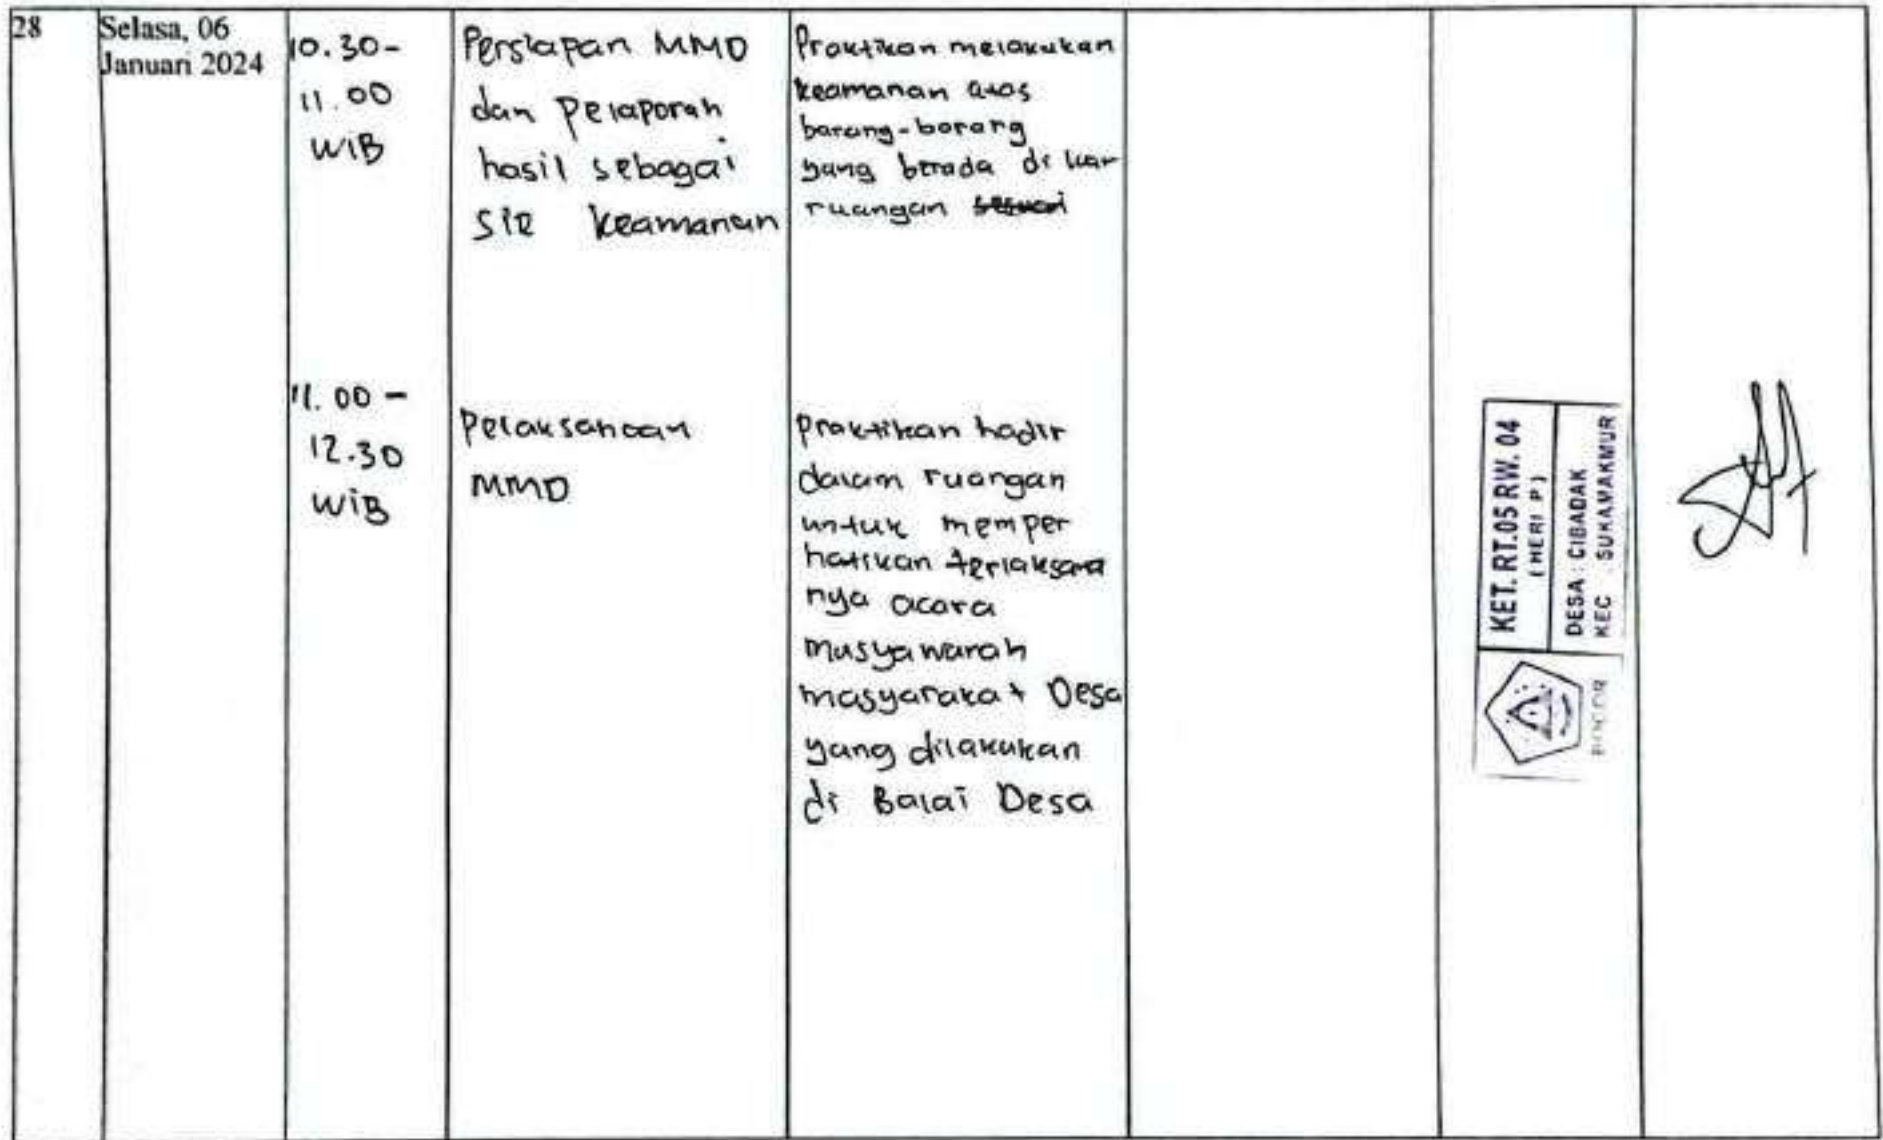 28
Selasa, 06
Januari 2024
10.30-
11.00
WIB
Persiapan MMD
dan Pelaporan
hasil sebagai
sie keamanan
Praktikan melakukan
keamanan atas
barang-barang
yang berada di luar
ruangan sesuai
11.00 -
12.30
WiB
Pelaksanaan
MMD
praktikan hadir
dalam ruangan
untuk memper
hatikan terlaksana
nya acara
Musyawarah
masyarakat Desa
yang dilakukan
di Balai Desa
KET. RT.05 RW. 04
( HERI P )
DESA : CIBADAK
KEC : SUKAMAKMUR
BOGOR